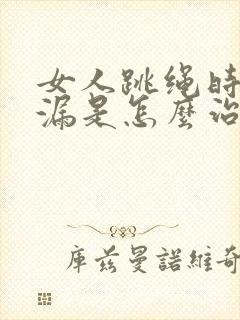 女人跳绳时
漏是怎麼治
库兹曼諾維奇